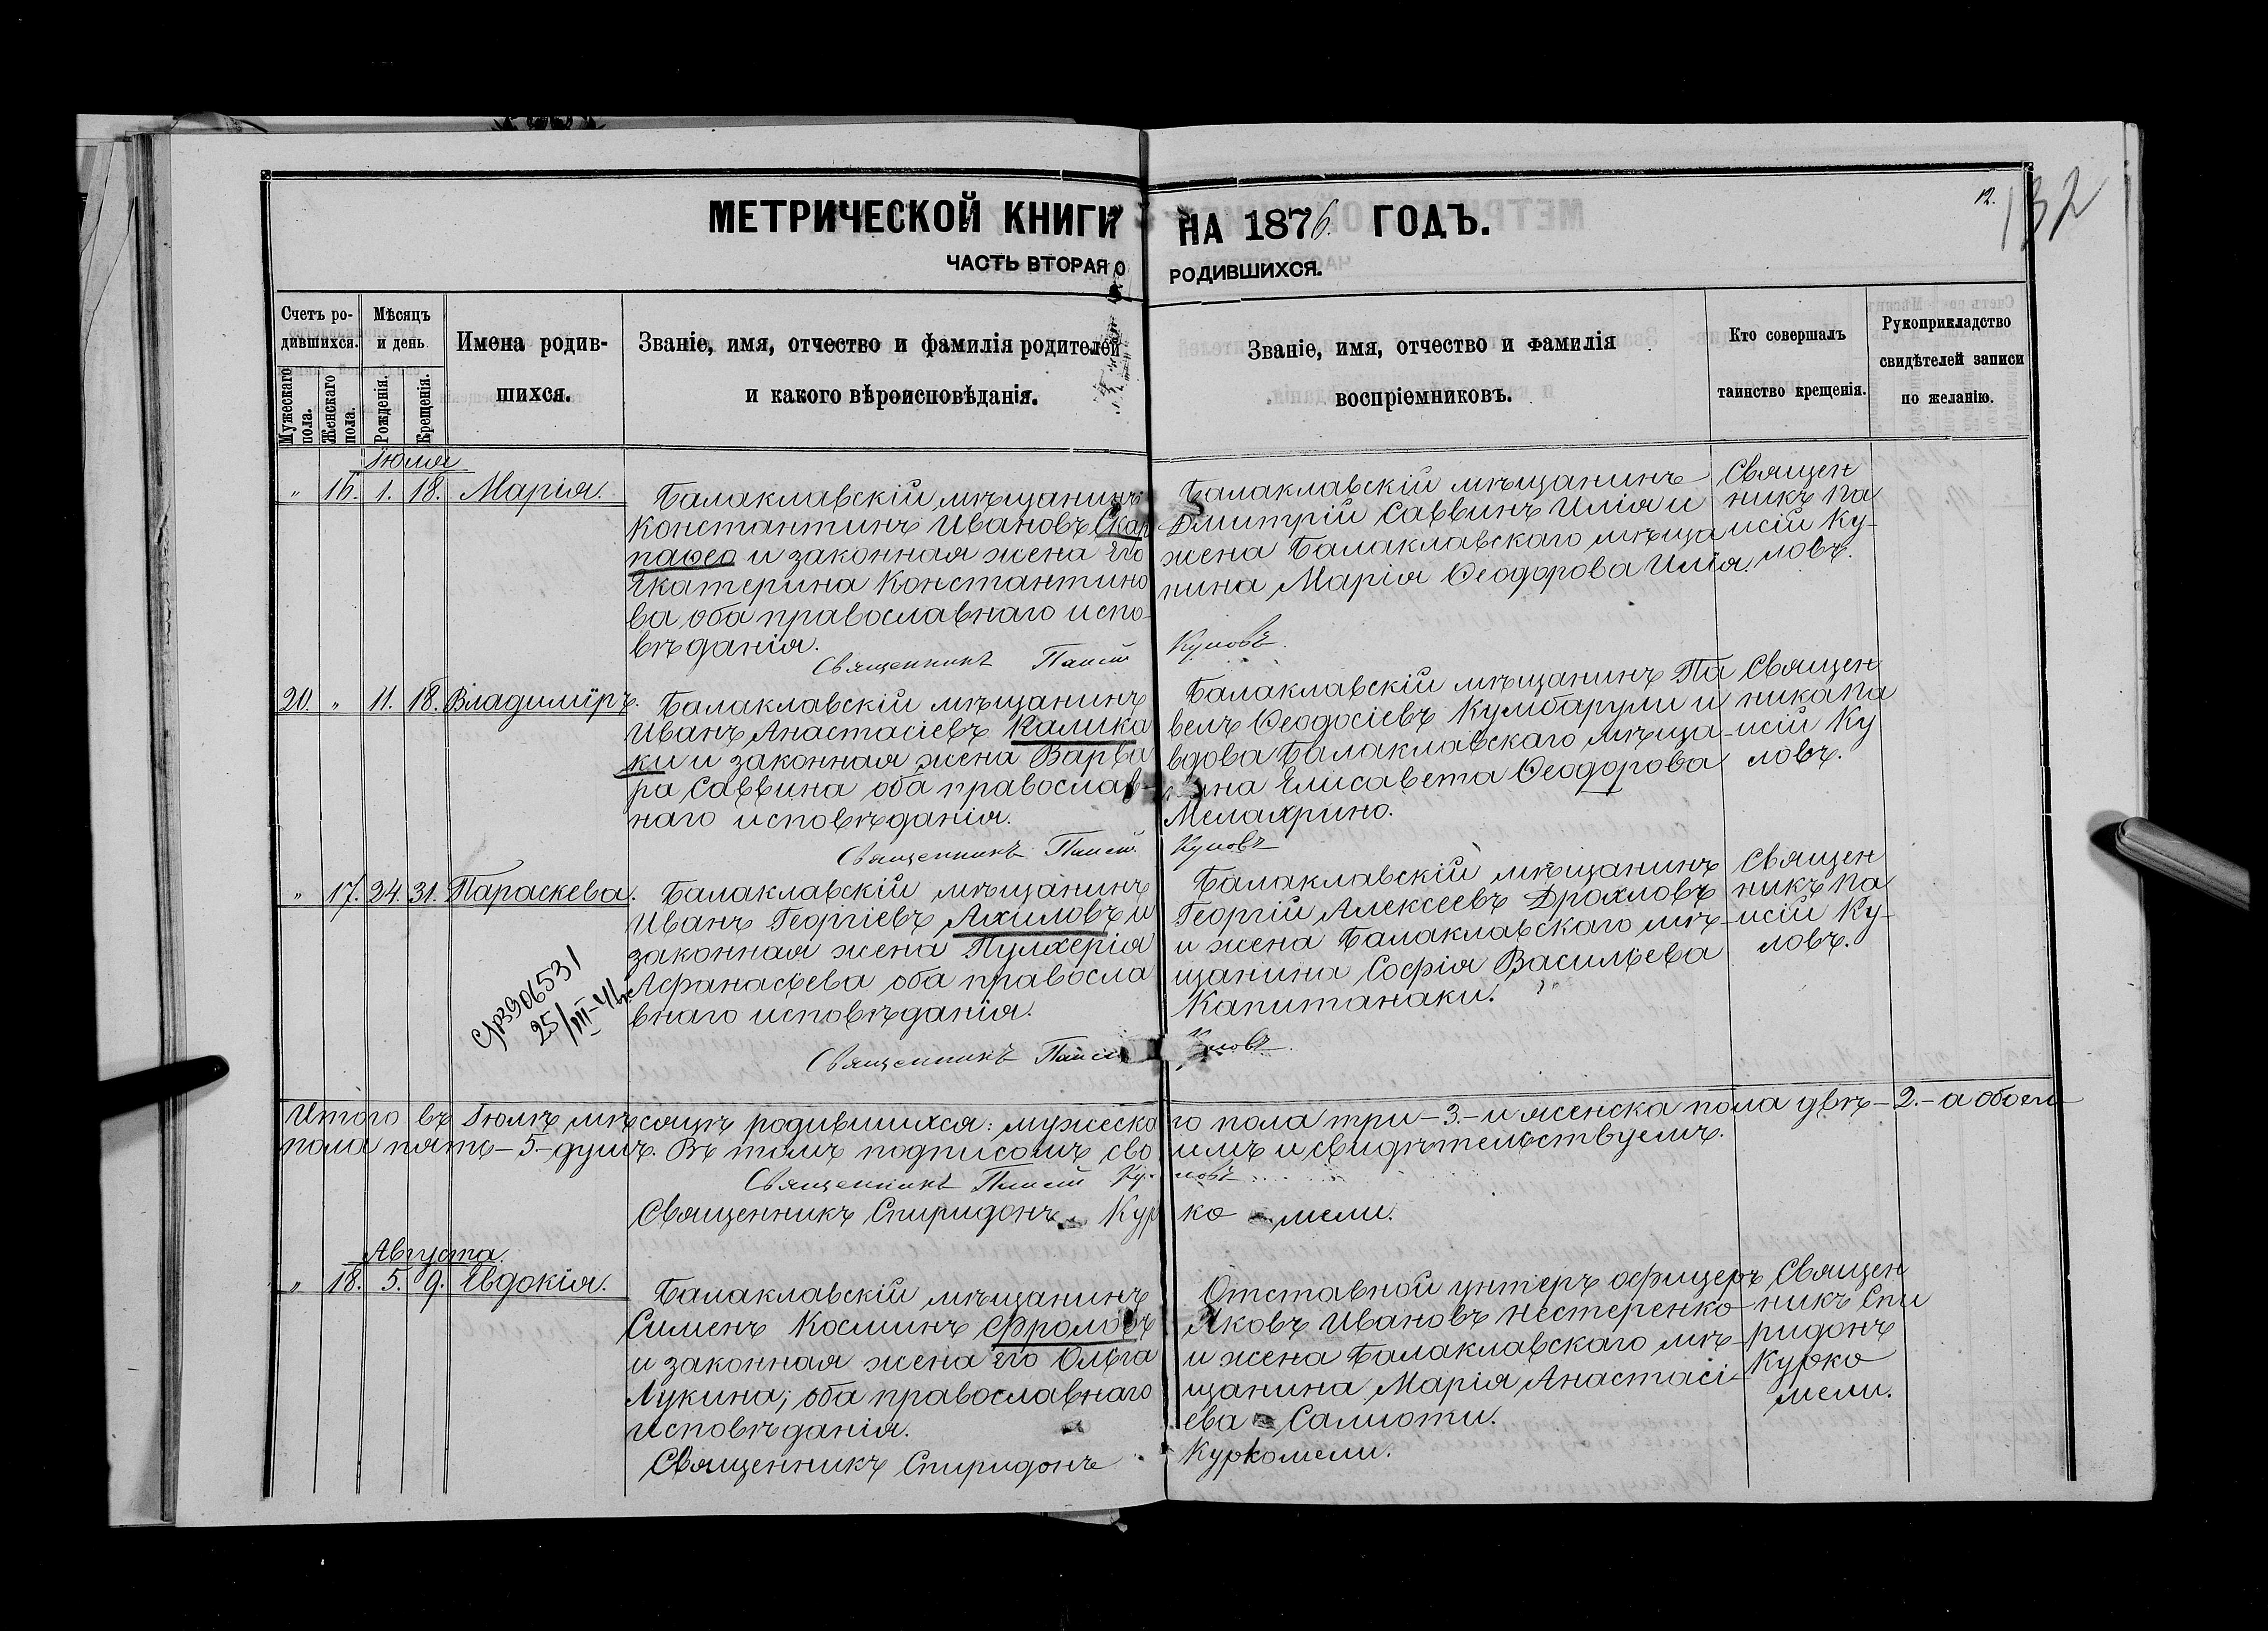 МЕТРИЧЕСКОЙ КНИГИ НА 1876. ГОДЪ.
12.
132
ЧАСТЬ ВТОРАЯ О РОДИВШИХСЯ.
Счетъ ро-
дившихся.
Мужескаго пола.
Женскаго пола.
Мѣсяцъ
и день
Рожденія.
Крещенія.
Имена родив-
шихся.
Званіе, имя, отчество и фамилія родителей
и какого вѣроисповѣданія.
Званіе, имя, отчество и фамилія
воспріемниковъ.
Кто совершалъ
таинство крещенія.
Рукоприкладство
свидѣтелей записи
по желанію.
Іюля
" 16. 1. 18. Марія.
Балаклавскій мѣщанинъ
Константинъ Ивановъ Скар
паѳео и законная жена его
Екатерина Константино
ва, оба православнаго испо-
вѣданія.
Священникъ Паисій Куловъ.
Балаклавскій мѣщанинъ
Дмитрій Саввинъ Илія и
жена Балаклавскаго мѣща
нина Марія Ѳеодорова Илія.
Священ
никъ Па
исій Ку-
ловъ.
20. " 11. 18. Владиміръ.
Балаклавскій мѣщанинъ
Иванъ Анастасіевъ Калика
ки и законная жена Варва
ра Саввина оба православ-
наго исповѣданія.
Священникъ Паисій Куловъ
Балаклавскій мѣщанинъ Па
велъ Ѳеодосіевъ Кумбарули и
вдова Балаклавскаго мѣща-
нина Елисавета Ѳеодорова
Мелахрино.
Священ
ника Па
исій Ку
ловъ.
" 17. 24. 31. Параскева.
Балаклавскій мѣщанинъ
Иванъ Георгіевъ Ахиловъ и
законная жена Пулхерія
Аѳанасьева оба правосла
внаго исповѣданія.
Священникъ Паисій Куловъ.
Балаклавскій мѣщанинъ
Георгій Алексеевъ Драхловъ
и жена Балаклавскаго мѣ-
щанина Софія Васильева
Капитанаки.
Священ
никъ Па
исій Ку-
ловъ.
906531
25/III-41
Итого въ Іюлѣ мѣсяцѣ родившихся: мужеско го пола три-3.-и женска пола двѣ-2.-а обоего
пола пять-5-душъ. Въ томъ подписомъ сво имъ и свидѣтельствуемъ.
Священникъ Паисій Куловъ
Священникъ Спиридонъ Кур ко мели.
Августа.
" 18. 5. 9. Евдокія.
Балаклавскій мѣщанинъ
Сименъ Косминъ Фроловъ
и законная жена его Ольга
Лукина; оба православнаго
исповѣданія.
Священникъ Спиридонъ Куркомели.
Отставной унтеръ офицеръ
Яковъ Ивановъ Нестеренко
и жена Балаклавскаго мѣ-
щанина Марія Анастасі-
ева Салиоти.
Священ
никъ Спи
ридонъ
Курко
мели.